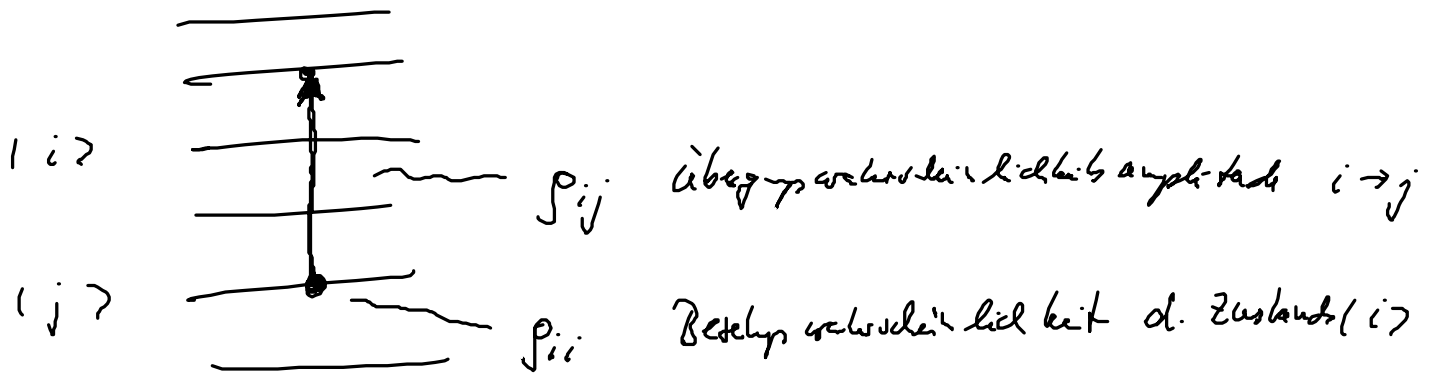 |i>
ρij Übergangswahrscheinlichkeitsamplitude i → j
|j>
ρii Besetzungswahrscheinlichkeit d. Zustands |i>